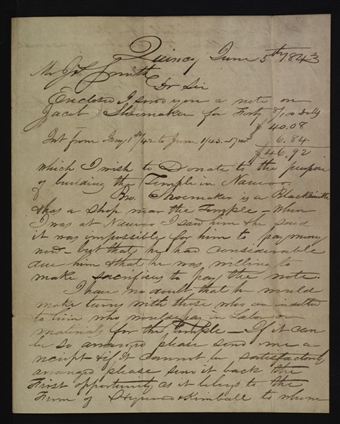 Quincy June 5th 1843
Mr J Smith
Dr Sir
Enclosed I send you a note on
Jacob Shoemaker for Forty 8/100 Dolls
$ 40.08
Int from to June 1/43 6.84
$ 46.92
which I wish to Donate to the purpose
of building the Temple in Nauvoo
Mr Shoemaker is a Blacksmith
& has a Shop near the Temple - When
I was at Nauvoo I saw him he said
it was impossible for him to pay money
now but that he had considerable
due him & that he was willing to
make sacrifices to pay the note.
I have no doubt that he would
make turns with those who are indebted
to him who would pay in Labor or
materials for the Temple - If it can
be so arranged please send me a
receipt & if it cannot be satisfactorily
arranged please send it back the
first opportunity as it belongs to the
Firm of & Kimball to whom